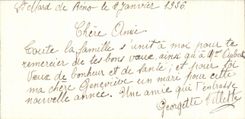 le 2 Janvier 1936
Chère Amie
Toute la famille s'unit à moi pour te
remercier de tes bons vœux, ainsi qu'à Mme
Vœux de bonheur et de santé, et pour toi
ma chère Geneviève un mari pour cette
nouvelle année. Une amie qui t'embrasse
Georgette Villette